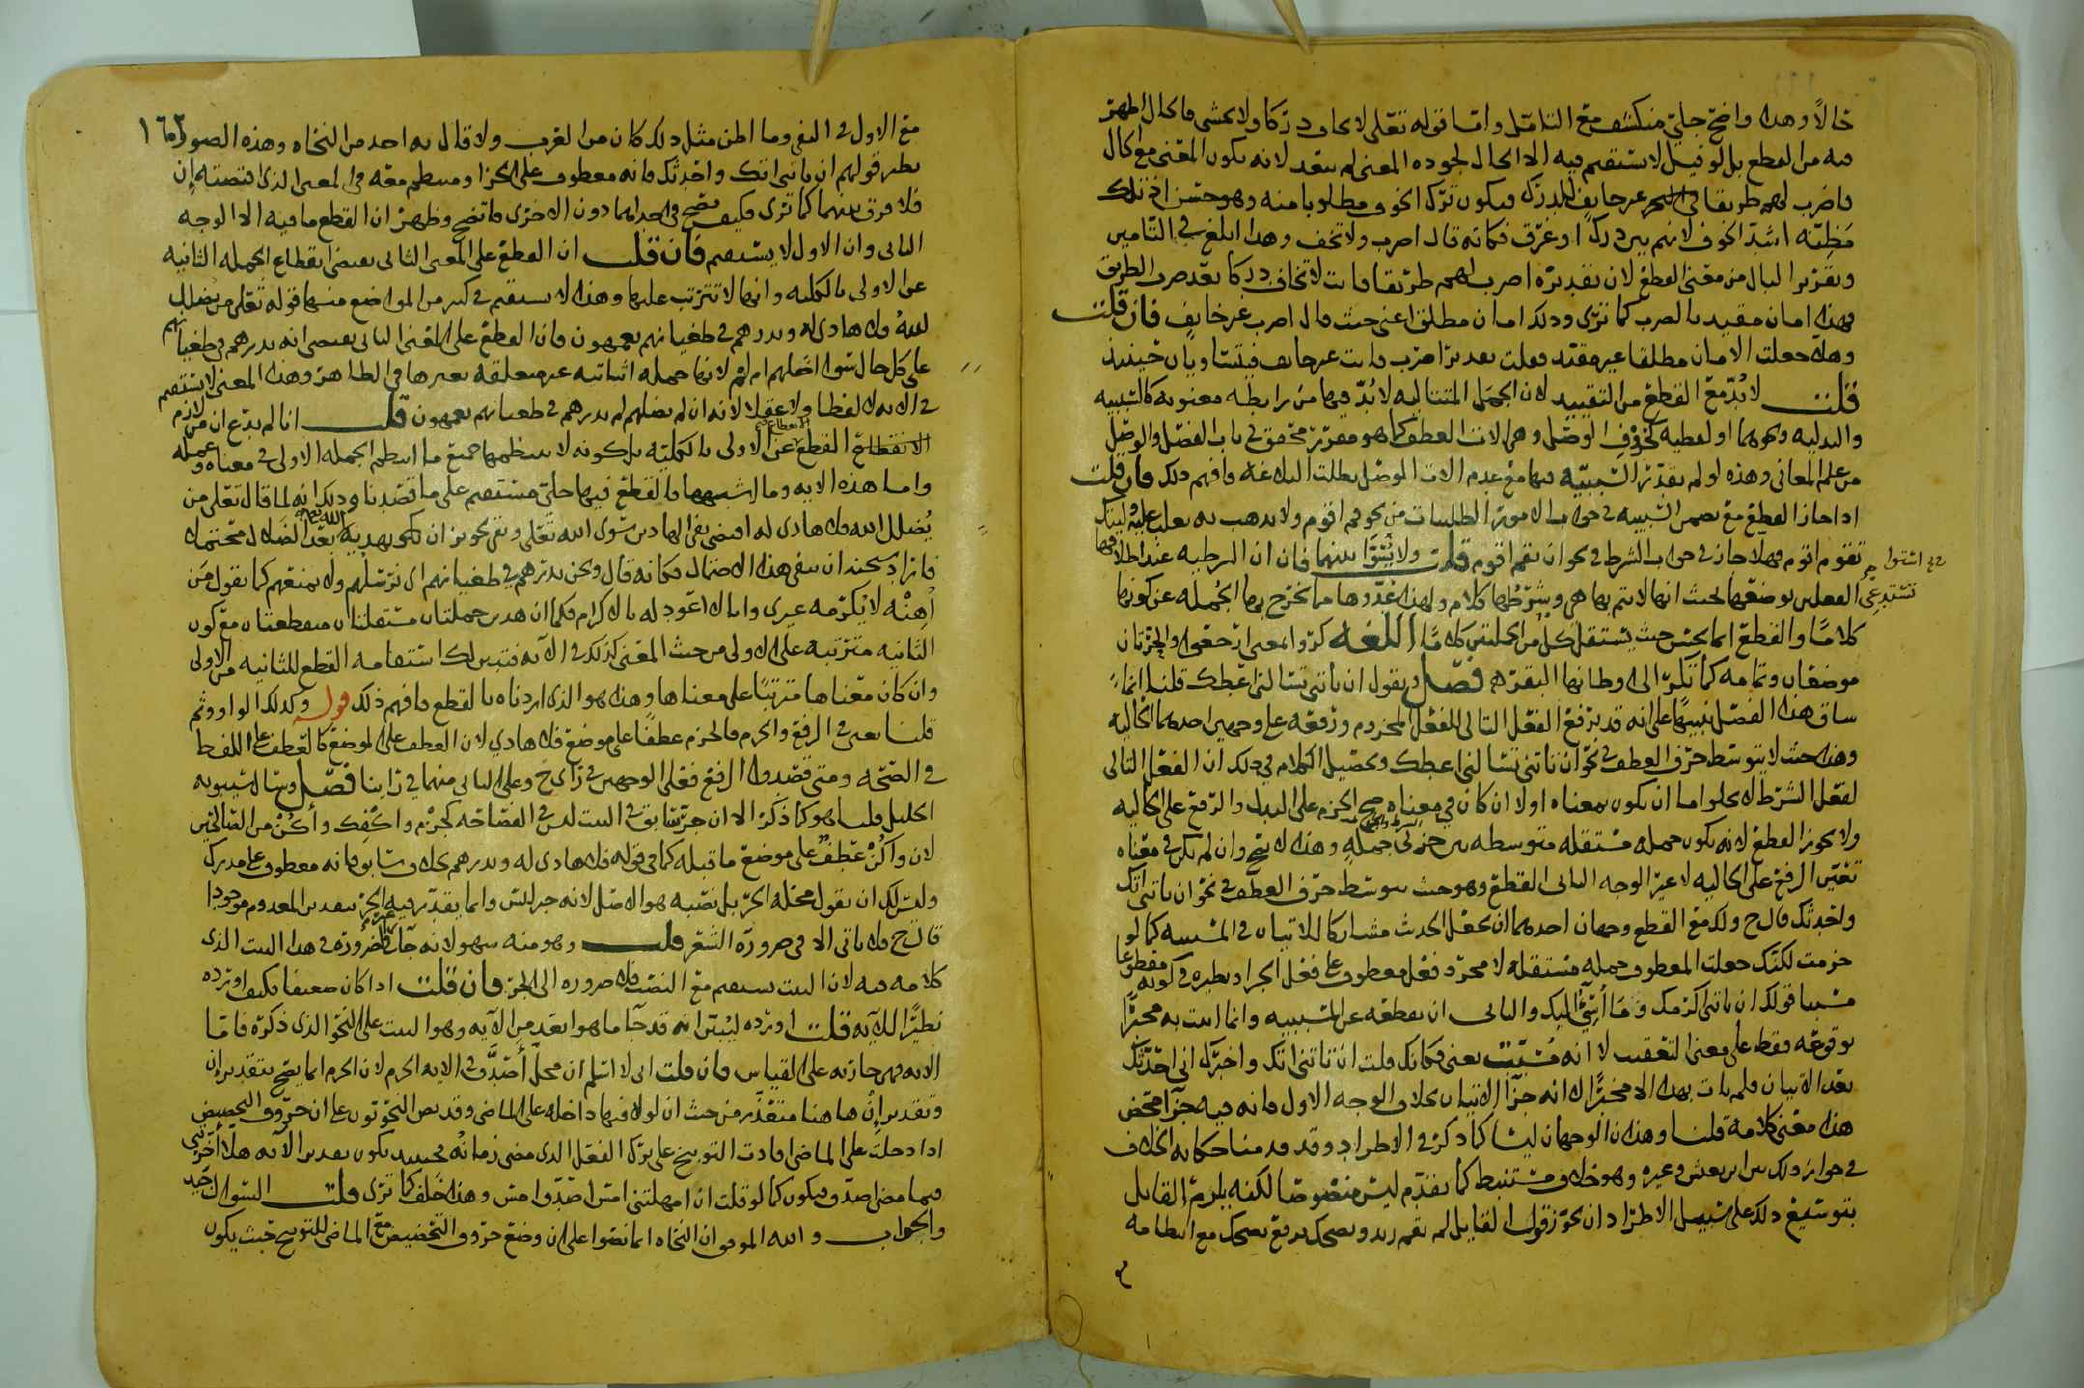 حالًا وهذا واضح جلي منكشف مع التأمل واما قوله تعلى لا تخاف دركا ولا تخشى فالحال اظهر
فيه من القطع بل لو قيل لا يستقيم فيه الا الحال لجوده المعنى لم يبعد لانه يكون المعنى مع الحال
فاضرب لهم طريقا في البحر غير خايف للدرك فيكون ترك الخوف مطلوبا منه وهو حسن اذ تلك
مظنه اشد الخوف لانهم بين درك او غرق فكانه قال اضرب ولا تخف وهذا ابلغ في التامين
وتقرير البال من معنى القطع لان تقديره اضرب لهم طريقا فانت لا تخاف دركا بعد ضرب الطريق
فهذا امان مقيد بالضرب كما ترى وذلك امان مطلق اعني حيث قال اضرب غير خايف فان قلت
وهلا جعلت الامان مطلقا غير مقيد فقلت تقديره اضرب فانت غير خايف فيتساويان حينئذ
قلت لا بد مع القطع من التقييد لان الجمل المتتاليه لا بد فيها من رابطه معنويه كالسببيه
والبدليه ونحوهما او لفظيه كحروف الوصل وهي الات العطف كما هو مقرر محقق في باب الفصل والوصل
من علم المعاني وهذه لو لم تقدر السببيه فيها مع عدم الات الوصل بطلت البلاغه فافهم ذلك فان قلت
اذا جاز القطع مع تضمن السببيه في جواب الامور الطلبيات من نحو قم اقوم ولا تذهب به تغلب عليه وليتك
تقوم اقوم فهلا جاز في جواب الشرط في نحو ان تقم اقوم قلت ولا سوا بينهما فان ان الشرطيه عند اطلاقها
تستدعي الفعلين بوضعها بحيث انها لا يتم بها هي وشرطها كلام ولهذا عدوها مما يخرج بها الجمله عن كونها
كلاما والقطع انما يحسن حيث يستقل كل من الجملتين كلاما اللغه كروا المعنى ارجعوا والحرتان
موضعان وتمامه كما تكر الى اوطانها البقر فصل ويقول ان تاتني تسالني اعطك قلنا انما
ساق هذا الفصل تنبيها على انه قد يرفع الفعل التالي للفعل المجزوم ورفعه على وجهين احدهما الحاليه
وهذا حيث لا يتوسط حرف العطف في نحو ان تاتني تسالني اعطك وتحصيل الكلام في ذلك ان الفعل التالي
لفعل الشرط لا يخلوا اما ان يكون بمعناه اولا ان كان في معناه صح الجزم على البدل والرفع على الحاليه
ولا يجوز القطع لانه يكون جمله مستقله متوسطه بين جزئي جمله وهذا لا يصح وان لم يكن في معناه
تعين الرفع على الحاليه لا غير الوجه الثاني القطع وهو حيث يتوسط حرف العطف في نحو ان تاتني آتك
واحدثك قال ح ولك مع القطع وجهان احدهما ان تجعل الحدث مشاركا للاتيان في المشيه كما لو
جزمت لكنك جعلت المعطوف جمله مستقله لا مجرد فعل معطوف على فعل الجزا ونظيره في كونه مقطوعا
مشيا قولك ان تاتني اكرمك وما اسيء اليك والثاني ان تقطعه عن المشيه وانما انت به مخبرا
بوقوعه فقط على معنى التعقيب لا انه مسبب يعني فكانك قلت ان تاتني آتك واخبرك اني احدثك
بعد الاتيان فلم يات بهذا الا مخبرا لا انه جزآ الاتيان بخلاف الوجه الاول فانه فيه جزآ محض
هذا معنى كلامه قلنا وهذان الوجهان ليسا كما ذكر في الاطراد وقد قدمنا حكايه الخلاف
في جواز ذلك عن ابن يعيش وغيره وهو خلاف مستنبط كما تقدم ليس منصوصا لكنه يلزم القايل
بتوسيع ذلك على سبيل الاطراد ان يجوز قول القايل لم يقم زيد ويضحك برفع يضحك مع انتظامه
مع الاول في النفي وما اظن مثل ذلك كان من العرب ولا قال به احد من النحاه وهذه الصوره ١٦٢
نظير قولهم ان تاتني آتك واحدثك فانه معطوف على الجزا ومنتظم معه في المعنى الذي اقتضته ان
فلا فرق بينهما كما ترى فكيف يصح في احداهما دون الاخرى فاتضح وظهر ان القطع ما فيه الا الوجه
الثاني وان الاول لا يستقيم فان قلت ان القطع على المعنى الثاني يقتضي انقطاع الجمله الثانيه
عن الاولى بالكليه وانها لا تترتب عليها وهذا لا يستقيم في كثير من المواضع منها قوله تعلى من يضلل
الله فلا هادي له ويذرهم في طغيانهم يعمهون فان القطع على المعنى الثاني يقتضي انه يذرهم في طغيانهم
على كل حال سوا اضلهم ام لم لانها جمله اثباتيه غير متعلقه بغيرها في الظاهر وهذا المعنى لا يستقيم
في الايه لا لفظا ولا عقلا لانه ان لم يضلهم لم يذرهم في طغيانهم يعمهون قلت انا لم ندع ان من لازم
القطع الانقطاع عن الاولى بالكليه بل كونه لا ينتظمها جميع ما انتظم الجمله الاولى في معناه وعمله
واما هذه الايه وما اشبهها فالقطع فيها جلي مستقيم على ما قصدنا وذلك انه لما قال تعلى من
يضلل الله فلا هادي له اقتضى نفي الهادي سوى الله تعلى وبقي تجويز ان يكون يهديه الله تعلى بعد الضلال محتملا
فاراد سبحنه ان ينفي هذا الاحتمال فكانه قال ونحن نذرهم في طغيانهم اي نرسلهم ولا نمنعهم كما تقول من
اهنه لا يكرمه غيري وانا لا اعود له بالاكرام فكما ان هذين جملتان مستقلتان منقطعتان مع كون
الثانيه مترتبه على الاولى من حيث المعنى كذلك في الآيه فتبين لك استقامه القطع للثانيه من الاولى
وان كان معناها مترتبا على معناها وهذا هو الذي اردناه بالقطع فافهم ذلك قوله وكذلك الواو وثم
قلنا يعني في الرفع والجزم فالجزم عطفا على موضع فلا هادي لان العطف على الموضع كالعطف على اللفظ
في الصحه ومتى قصدوا الرفع فعلى الوجهين في راي ح وعلى الثاني منهما في راينا فصل وسال سيبويه
الخليل قلنا هو كما ذكر الا ان جر سابق في البيت ليس في الفصاحه كجزم واكفك وأكن من الصالحين
لان وأكن عطف على موضع ما قبله كما في قوله فلا هادي له ويذرهم بخلاف سابق فانه معطوف على مدرك
وليس لك ان تقول محله الجر بل نصبه هو الاصل لانه خبر ليس وانما يقدر فيه الجر بتقدير المعدوم موجودا
قال ح فلا ياتي الا في ضروره الشعر قلت وهو منه سهو لانه جآ في غير ضروره في هذا البيت الذي
كلامه فيه لان البيت يستقيم مع النصب فلا ضروره الى الجر فان قلت اذا كان ضعيفا فكيف اورده
نظيرًا للآيه قلت اورده ليبين انه قد جآ ما هو ابعد من الآيه وهو البيت على النحو الذي ذكره فاما
الايه فهي جاريه على القياس فان قلت اني لا اسلم ان محل أصدق في الايه الجزم لان الجزم انما يصح بتقدير إن
وتقدير إن ها هنا متعذر من حيث ان لولا فيها داخله على الماضي وقد نص النحويون على ان حروف التحضيض
اذا دخلت على الماضي افادت التوبيخ على ترك الفعل الذي مضى زمانه فحينئذ يكون تقدير الآيه هلا أخرتني
فيما مضى اصدق فيكون كما لو قلت ان امهلتني امس اصدق امس وهذا خلف كما ترى قلت السوال جيد
والجواب والله الموفق ان النحاه انما نصوا على ان وضع حروف التحضيض مع الماضي للتوبيخ حيث يكون